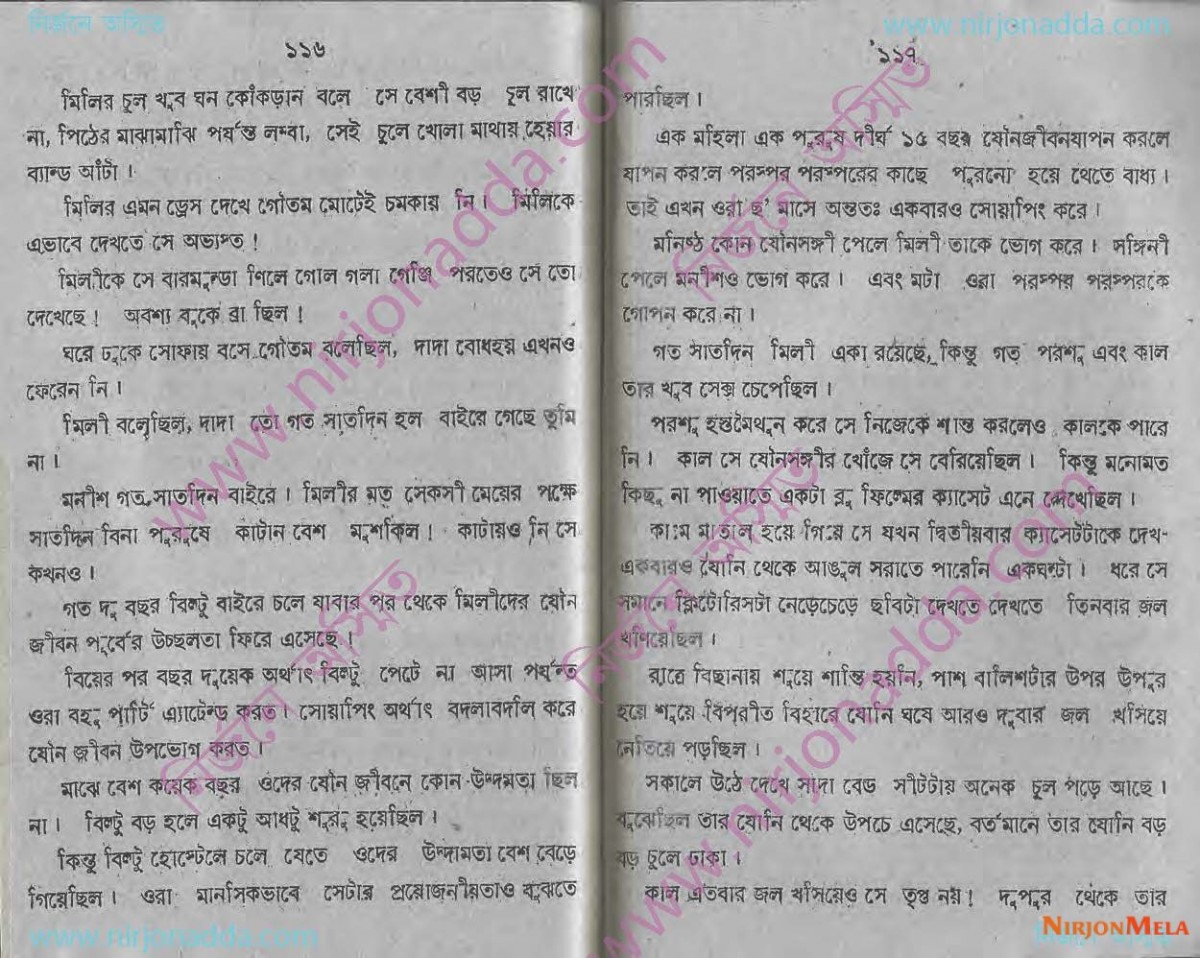 নির্জনে অস্মিত
www.nirjonadda.com
১১৬
মিলির চুল খুব ঘন কোঁকড়ান বলে সে বেশী বড় চুল রাখে
না, পিঠের মাঝামাঝি পর্যন্ত লম্বা, সেই চুলে খোলা মাথায় হেয়ার
ব্যান্ড আঁটা।
মিলির এমন ড্রেস দেখে গৌতম মোটেই চমকায় নি। মিলিকে
এভাবে দেখতে সে অভ্যস্ত!
মিলীকে সে বারমুন্ডা গোল গলা গেঞ্জি পরতেও সে তো
দেখেছে! অবশ্য বুকে ব্রা ছিল!
ঘরে ঢুকে সোফায় বসে গৌতম বলেছিল, দাদা বোধহয় এখনও
ফেরেন নি।
মিলী বলেছিল, দাদা তো গত সাতদিন হল বাইরে গেছে তুমি
না।
মনীশ গত সাতদিন বাইরে। মিলীর মত সেকসী মেয়ের পক্ষে
সাতদিন বিনা পুরুষে কাটান বেশ মুশকিল! কাটায়ও নি সে
কখনও।
গত দু বছর বিল্টু বাইরে চলে যাবার পর থেকে মিলীদের যৌন
জীবন পূর্বের উচ্ছলতা ফিরে এসেছে।
বিয়ের পর বছর দুয়েক অর্থাৎ বিল্টু পেটে না আসা পর্যন্ত
ওরা বহু পার্টি এ্যাটেন্ড করত। সোয়াপিং অর্থাৎ বদলাবদলি করে
যৌন জীবন উপভোগ করত।
মাঝে বেশ কয়েক বছর ওদের যৌন জীবনে কোন উন্দমতা ছিল
না। বিল্টু বড় হলে একটু আধটু শুরু হয়েছিল।
কিন্তু বিল্টু হোস্টেলে চলে যেতে ওদের উদ্দামতা বেশ বেড়ে
গিয়েছিল। ওরা মানসিকভাবে সেটার প্রয়োজনীয়তাও বুঝতে
১১৭
পারছিল।
এক মহিলা এক পুরুষ দীর্ঘ ১৫ বছর যৌনজীবনযাপন করলে
যাপন করলে পরস্পর পরস্পরের কাছে পুরনো হয়ে যেতে বাধ্য।
তাই এখন ওরা ছ' মাসে অন্ততঃ একবারও সোয়াপিং করে।
মনিষ্ঠ কোন যৌনসঙ্গী পেলে মিলী তাকে ভোগ করে। সঙ্গিনী
পেলে মনীশও ভোগ করে। এবং মটা ওরা পরস্পর পরস্পরকে
গোপন করে না।
গত সাতদিন মিলী একা রয়েছে, কিন্তু গত পরশু এবং কাল
তার খুব সেক্স চেপেছিল।
পরশু হস্তমৈথুন করে সে নিজেকে শান্ত করলেও কালকে পারে
নি। কাল সে যৌনসঙ্গীর খোঁজে সে বেরিয়েছিল। কিন্তু মনোমত
কিছু না পাওয়াতে একটা ব্লু ফিল্মের ক্যাসেট এনে দেখেছিল।
কামে মাতাল হয়ে গিয়ে সে যখন দ্বিতীয়বার ক্যাসেটটাকে দেখ-
একবারও যোনি থেকে আঙুল সরাতে পারেনি একঘন্টা। ধরে সে
সমানে ক্লিটোরিসটা নেড়েচেড়ে ছবিটা দেখতে দেখতে তিনবার জল
খসিয়েছিল।
রাতে বিছানায় শুয়ে শান্তি হয়নি, পাশ বালিশটার উপর উপুর
হয়ে শুয়ে বিপরীত বিহারে যোনি ঘষে আরও দুবার জল খসিয়ে
নেতিয়ে পড়ছিল।
সকালে উঠে দেখে সাদা বেড সীটটায় অনেক চুল পড়ে আছে।
বুঝেছিল তার যোনি থেকে উপচে এসেছে, বর্তমানে তার যোনি বড়
বড় চুলে ঢাকা।
কাল এতবার জল খসিয়েও সে তৃপ্ত নয়! দুপুর থেকে তার
www.nirjonadda.com
NIRJONMELA